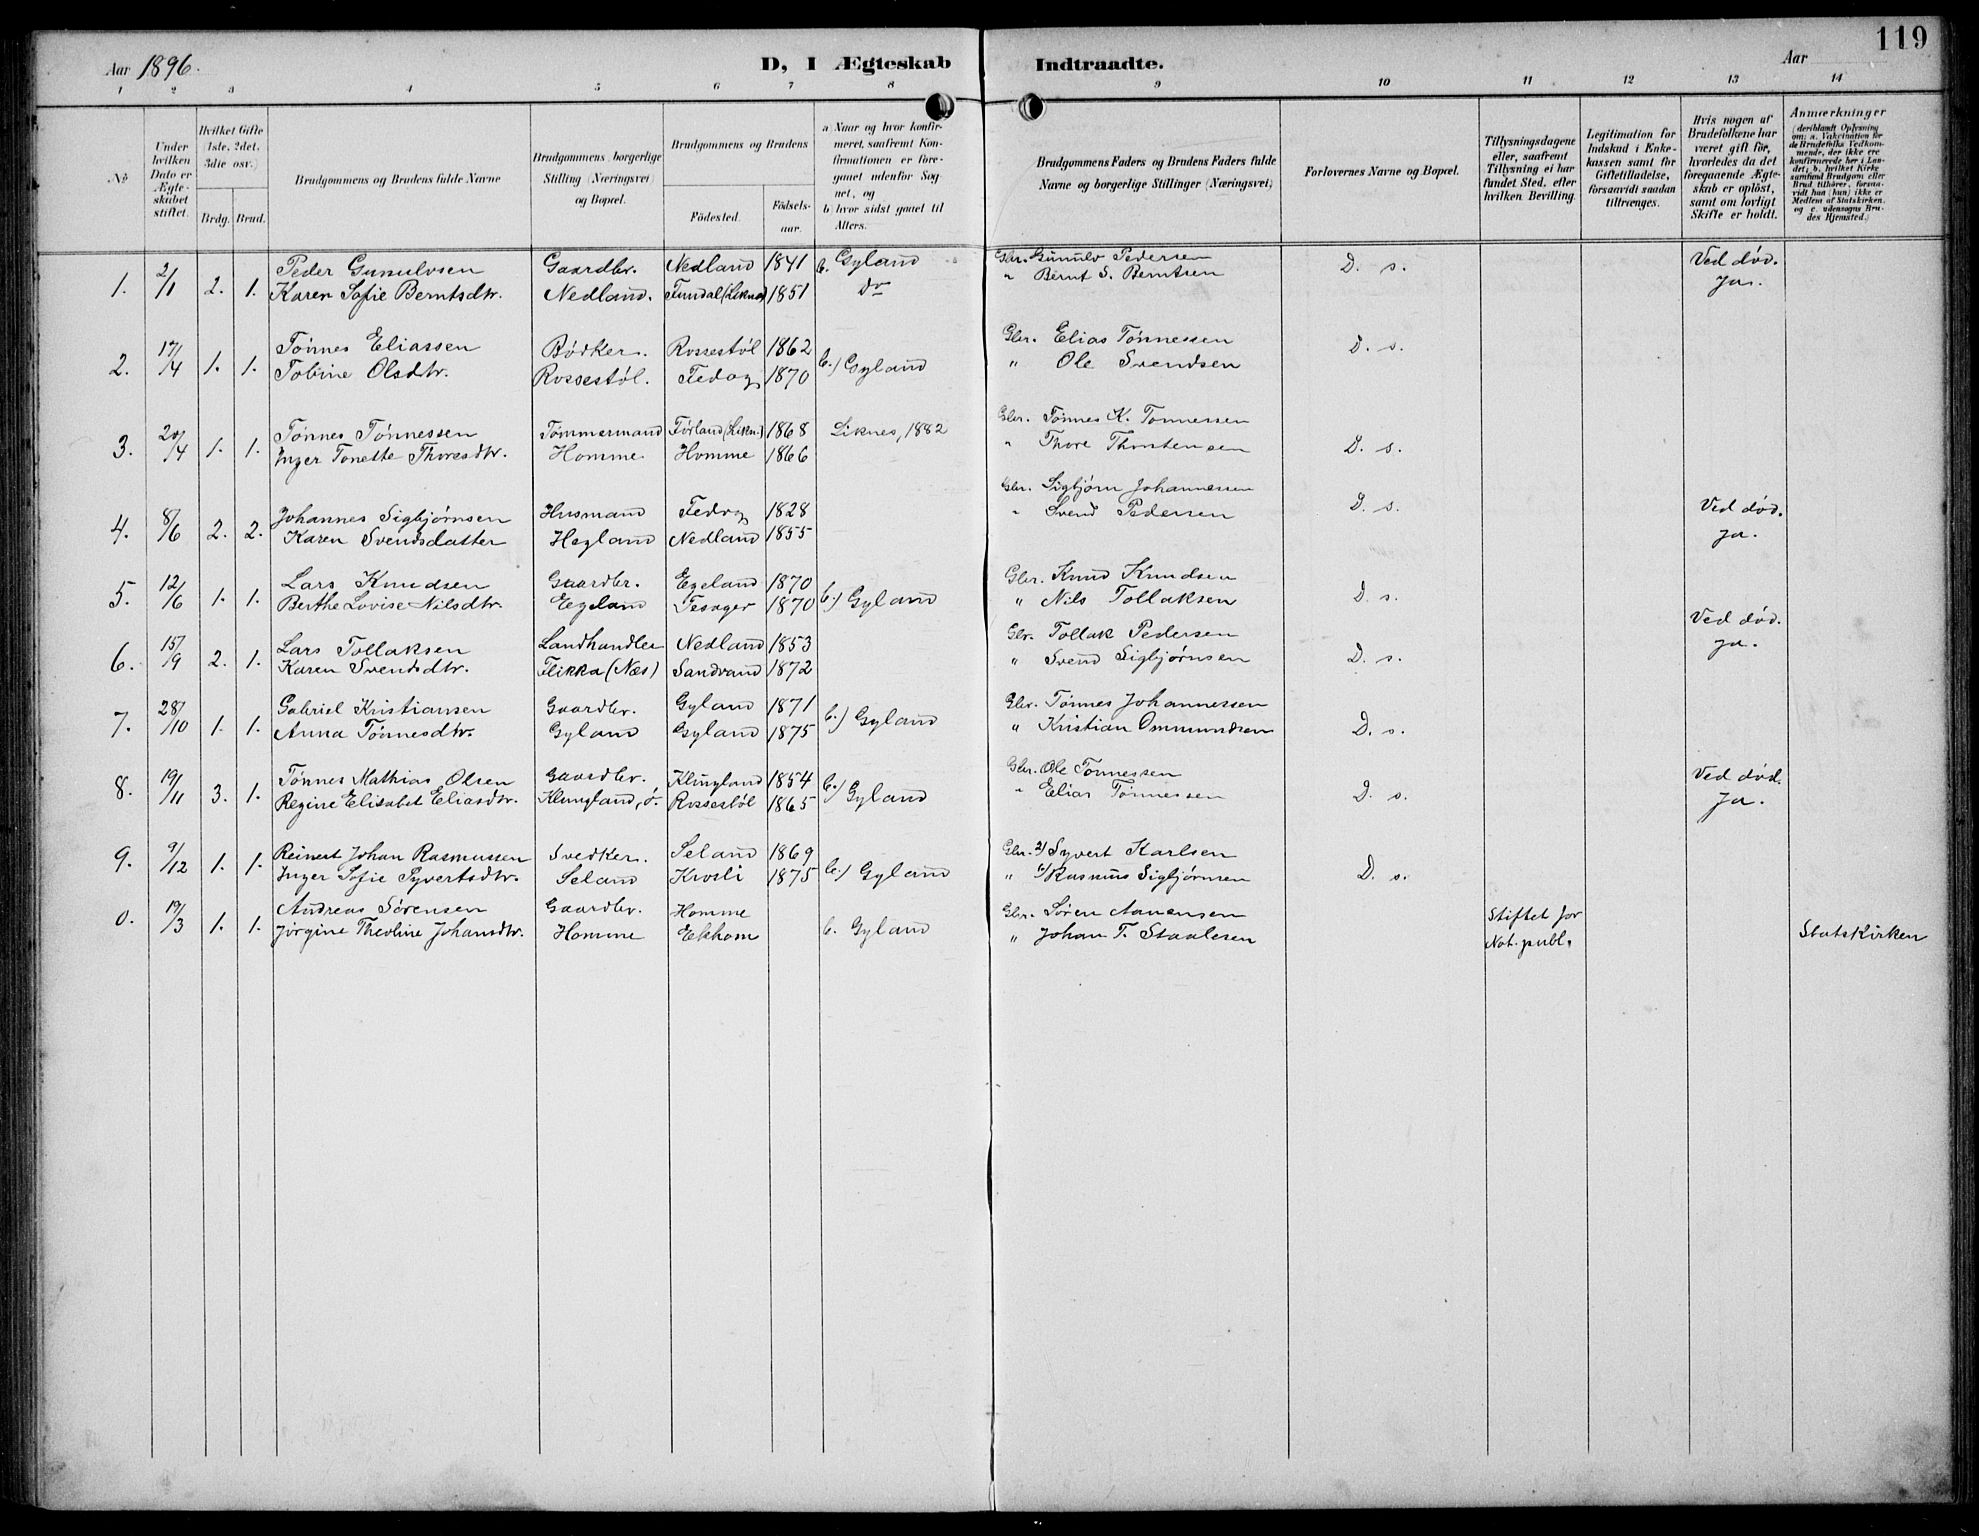 119
Aar 1896.
D, I Ægteskab Indtraadte.
Aar
1 2 3 4 5 6 7 8 9 10 11 12 13 14
No
Under hvilken Dato er Ægteskabet stiftet.
Hvilket Gifte 1ste, 2det, 3die osv.)
Brdg. Brud.
Brudgommens og Brudens fulde Navne
Brudgommens borgerlige Stilling (Næringsvei) og Bopæl.
Brudgommens og Brudens
Födested.
Födselsaar.
a) Naar og hvor konfirmeret, saafremt Konfirmationen er foregaaet udenfor Sognet, og
b) hvor sidst gaaet til Alters.
Brudgommens Faders og Brudens Faders fulde Navne og borgerlige Stillinger (Næringsvei)
Forlovernes Navne og Bopæl.
Tillysningsdagene eller, saafremt Tillysning ei har fundet Sted, efter hvilken Bevilling.
Legitimation for Indskud i Enkekassen samt for Giftetilladelse, forsaavidt saadan tiltrænges.
Hvis nogen af Brudefolkene har været gift før, hvorledes da det foregaaende Ægteskab er oplöst, samt om lovligt Skifte er holdt.
Anmerkninger
(deriblandt Oplysning om: a. Vakcination for de Brudefolks Vedkommende, der ikke ere konfirmerede her i Landet; b. hvilket Kirkesamfund Brudgom eller Brud tilhörer, forsaavidt han (hun) ikke er Medlem af Statskirken, og c. udensogns Brudes Hjemsted.)
1. 2/1 2. 1. Peder Gunulvsen Gaardbr. Nedland 1841 b. Gyland Gbr. Gunulv Pedersen D. s. Ved død.
Karen Sofie Berntsdtr. Nedland. (Liknes) 1851 Do " Bernt S. Berntsen Ja.
2. 17/4 1. 1. Tönnes Eliassen Bödker. Rossestöl 1862 b.) Gyland Gbr. Elias Tønnessen D. s.
Tobine Olsdtr. Rossestøl. Fedog 1870 " Ole Svendsen
3. 20/4 1. 1. Tønnes Tønnessen Tømmermand Førland (Likn.) 1868 Liknes, 1882 Gbr. Tønnes K. Tønnessen D. s.
Inger Tonette Thoresdtr. Homme Homme 1866 " Thore Thorstensen
4. 8/6 2. 2. Johannes Sigbjørnsen Husmand Fedog 1828 Gbr. Sigbjørn Johannessen D. s. Ved død.
Karen Svendsdatter Hegland Nedland 1855 " Svend Pedersen Ja.
5. 12/6 1. 1. Lars Knudsen Gaardbr. Egeland 1870 b.) Gyland Gbr. Knud Knudsen D. s.
Berthe Lovise Nilsdtr. Egeland Tesager 1870 " Nils Tollaksen
6. 15/9 2. 1. Lars Tollaksen Landhandler Nedland 1853 Gbr. Tollak Pedersen D. s. Ved død.
Karen Svendsdtr. Flikka (Næs) Sandvand 1872 " Svend Sigbjørnsen Ja.
7. 28/10 1. 1. Gabriel Kristiansen Gaardbr. Gyland 1871 b.) Gyland Gbr. Tønnes Johannessen D. s.
Anna Tønnesdtr. Gyland Gyland 1875 " Kristian Ommundsen
8. 19/11 3. 1. Tønnes Mathias Olsen Gaardbr. Klungland 1854 b.) Gyland Gbr. Ole Tønnessen D. s. Ved død.
Regine Elisabet Eliasdtr. Klungland, ö. Rossestöl 1865 " Elias Tønnessen Ja.
9. 9/12 1. 1. Reinert Johan Rasmussen Svedker. Seland 1869 b.) Gyland Gbr. 2) Syvert Karlsen D. s.
Inger Sofie Syvertsdtr. Seland Krosli 1875 " 1) Rasmus Sigbjørnsen
0. 19/3 1. 1. Andreas Sørensen Gaardbr. Homme b. Gyland Gbr. Søren Aanensen Stiftet for Statskirken
Jørgine Theoline Johansdtr. Homme Ekhom " Johan T. Staalesen Not. publ.